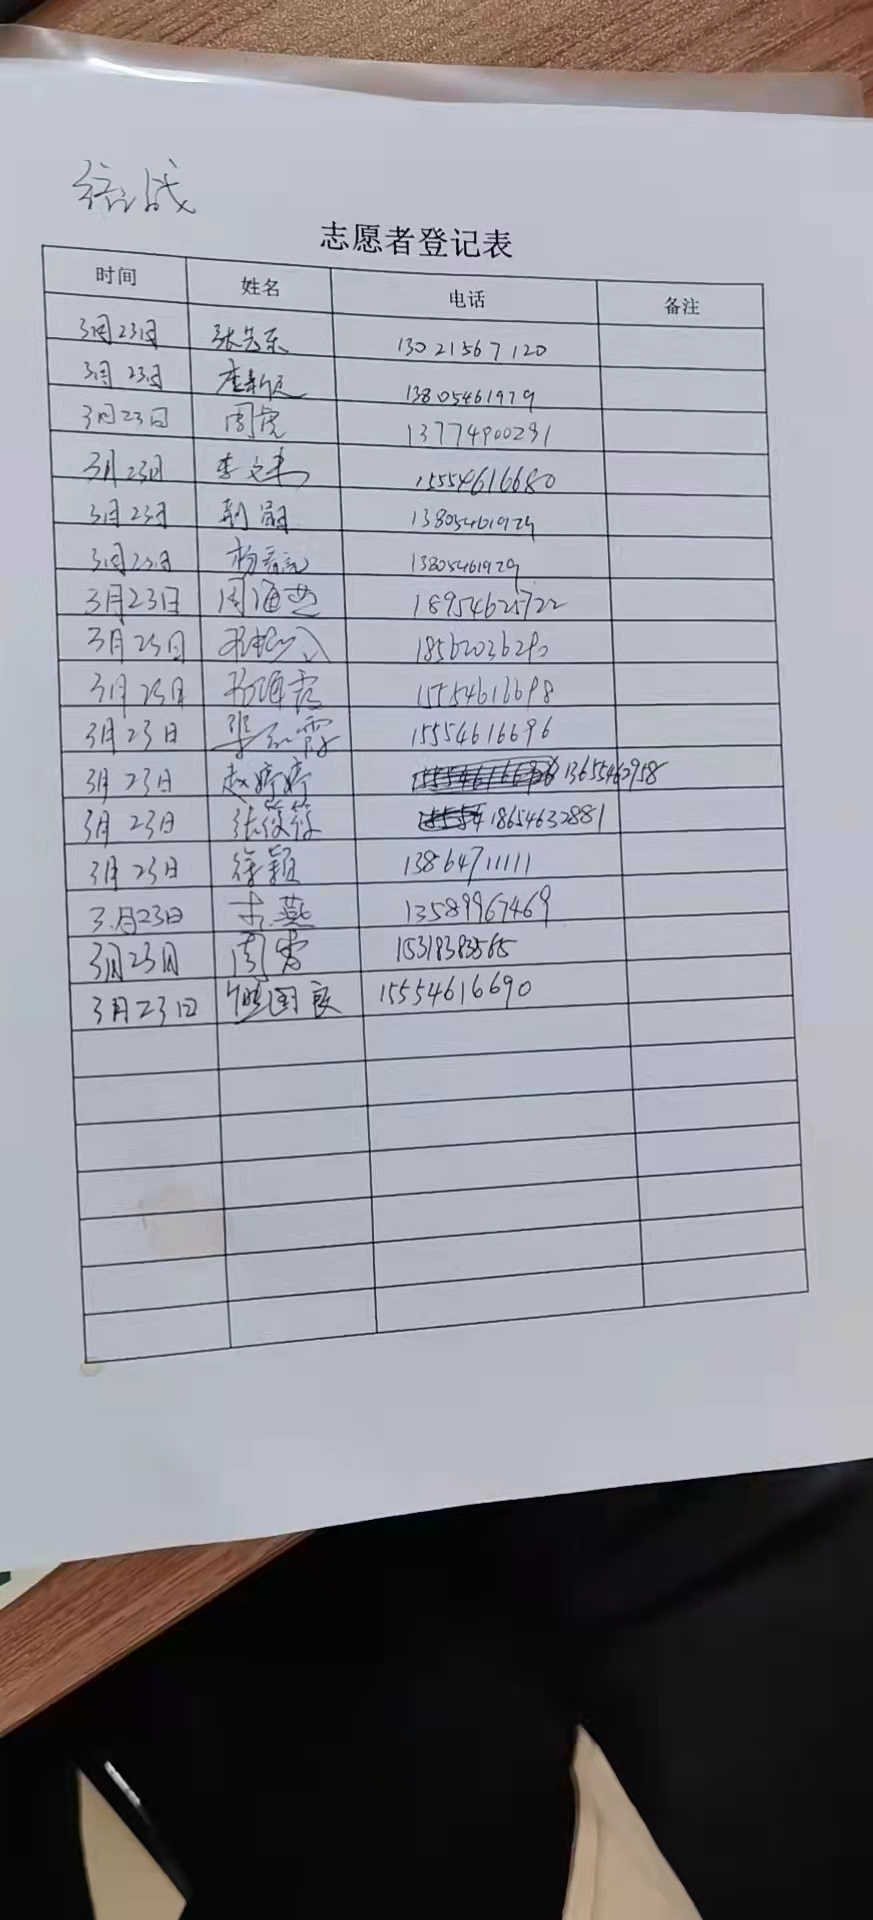 统战
志愿者登记表
时间 姓名 电话 备注
3月23日 13021567120
3月23日 13805461979
3月23日 周虎 13774900291
3月23日 李文 15554616680
3月23日 荆 13805461929
3月23日 杨 13805461929
3月23日 周海燕 18954625722
3月23日 18562036290
3月23日 15554616698
3月23日 霞 15554616696
3月23日 赵婷婷 13655462958
3月23日 张筱筱 18654632881
3月23日 徐颖 13864711111
3月23日 燕 13589967469
3月23日 周雷 15318383565
3月23日 国良 15554616690